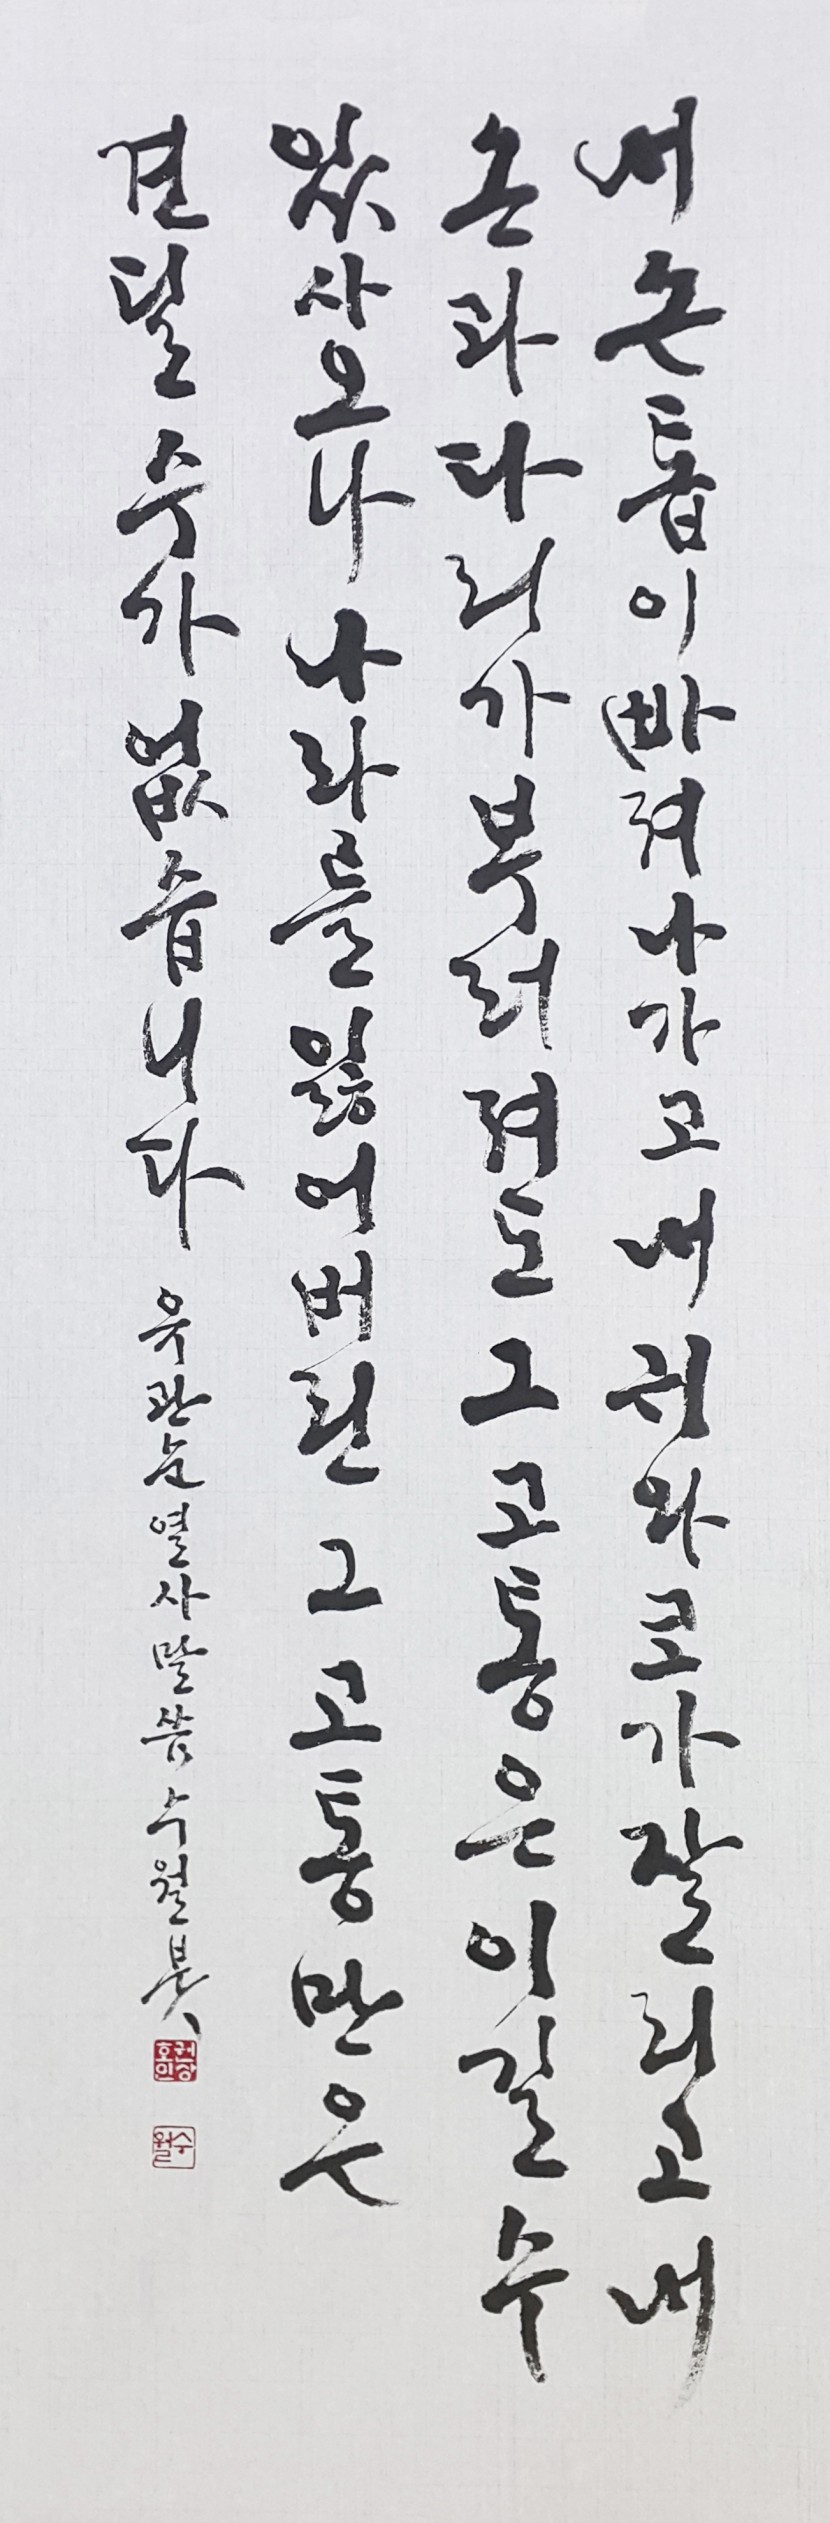 내손톱이빠져나가고내귀와코가잘리고내
손과다리가부러져도그고통은이길수
있사오나나라를잃어버린그고통만은
견딜수가없습니다 유관순열사말씀 수월붓
수월